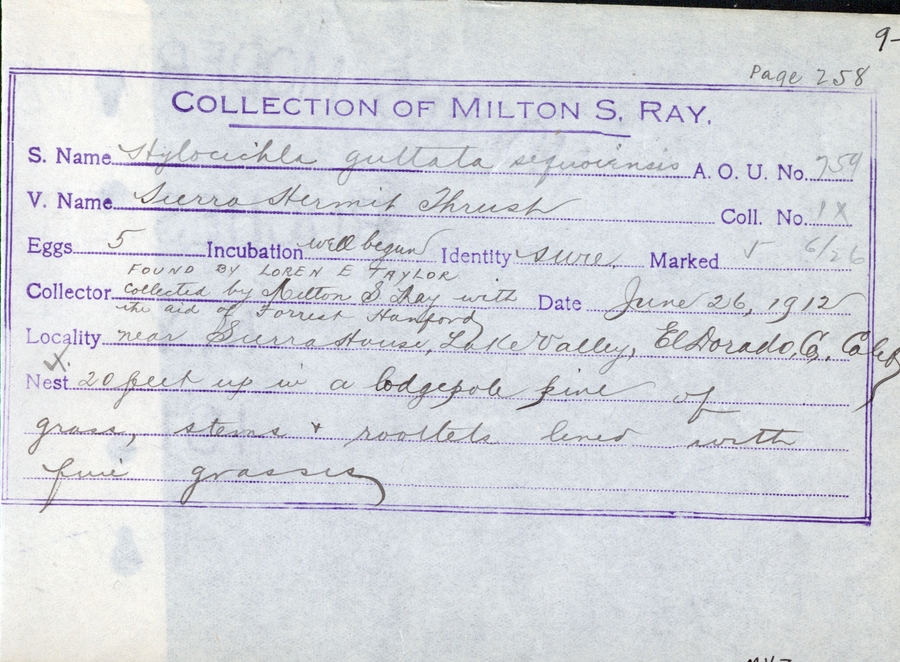 9-
Page 258
COLLECTION OF MILTON S. RAY.
S. Name Hylocichla guttata sequoiensis A. O. U. No. 759
V. Name Sierra Hermit Thrush Coll. No. 1X
Eggs 5 Incubation well begun Identity sure. Marked 5 6/26
FOUND BY LOREN E TAYLOR
Collector collected by Milton S Ray with Date June 26, 1912
the aid of Forrest Hanford
Locality near Sierra House, Lake Valley, El Dorado, Co. Calif
Nest 20 feet up in a lodgepole pine of
grass, stems & rootlets lined with
fine grasses